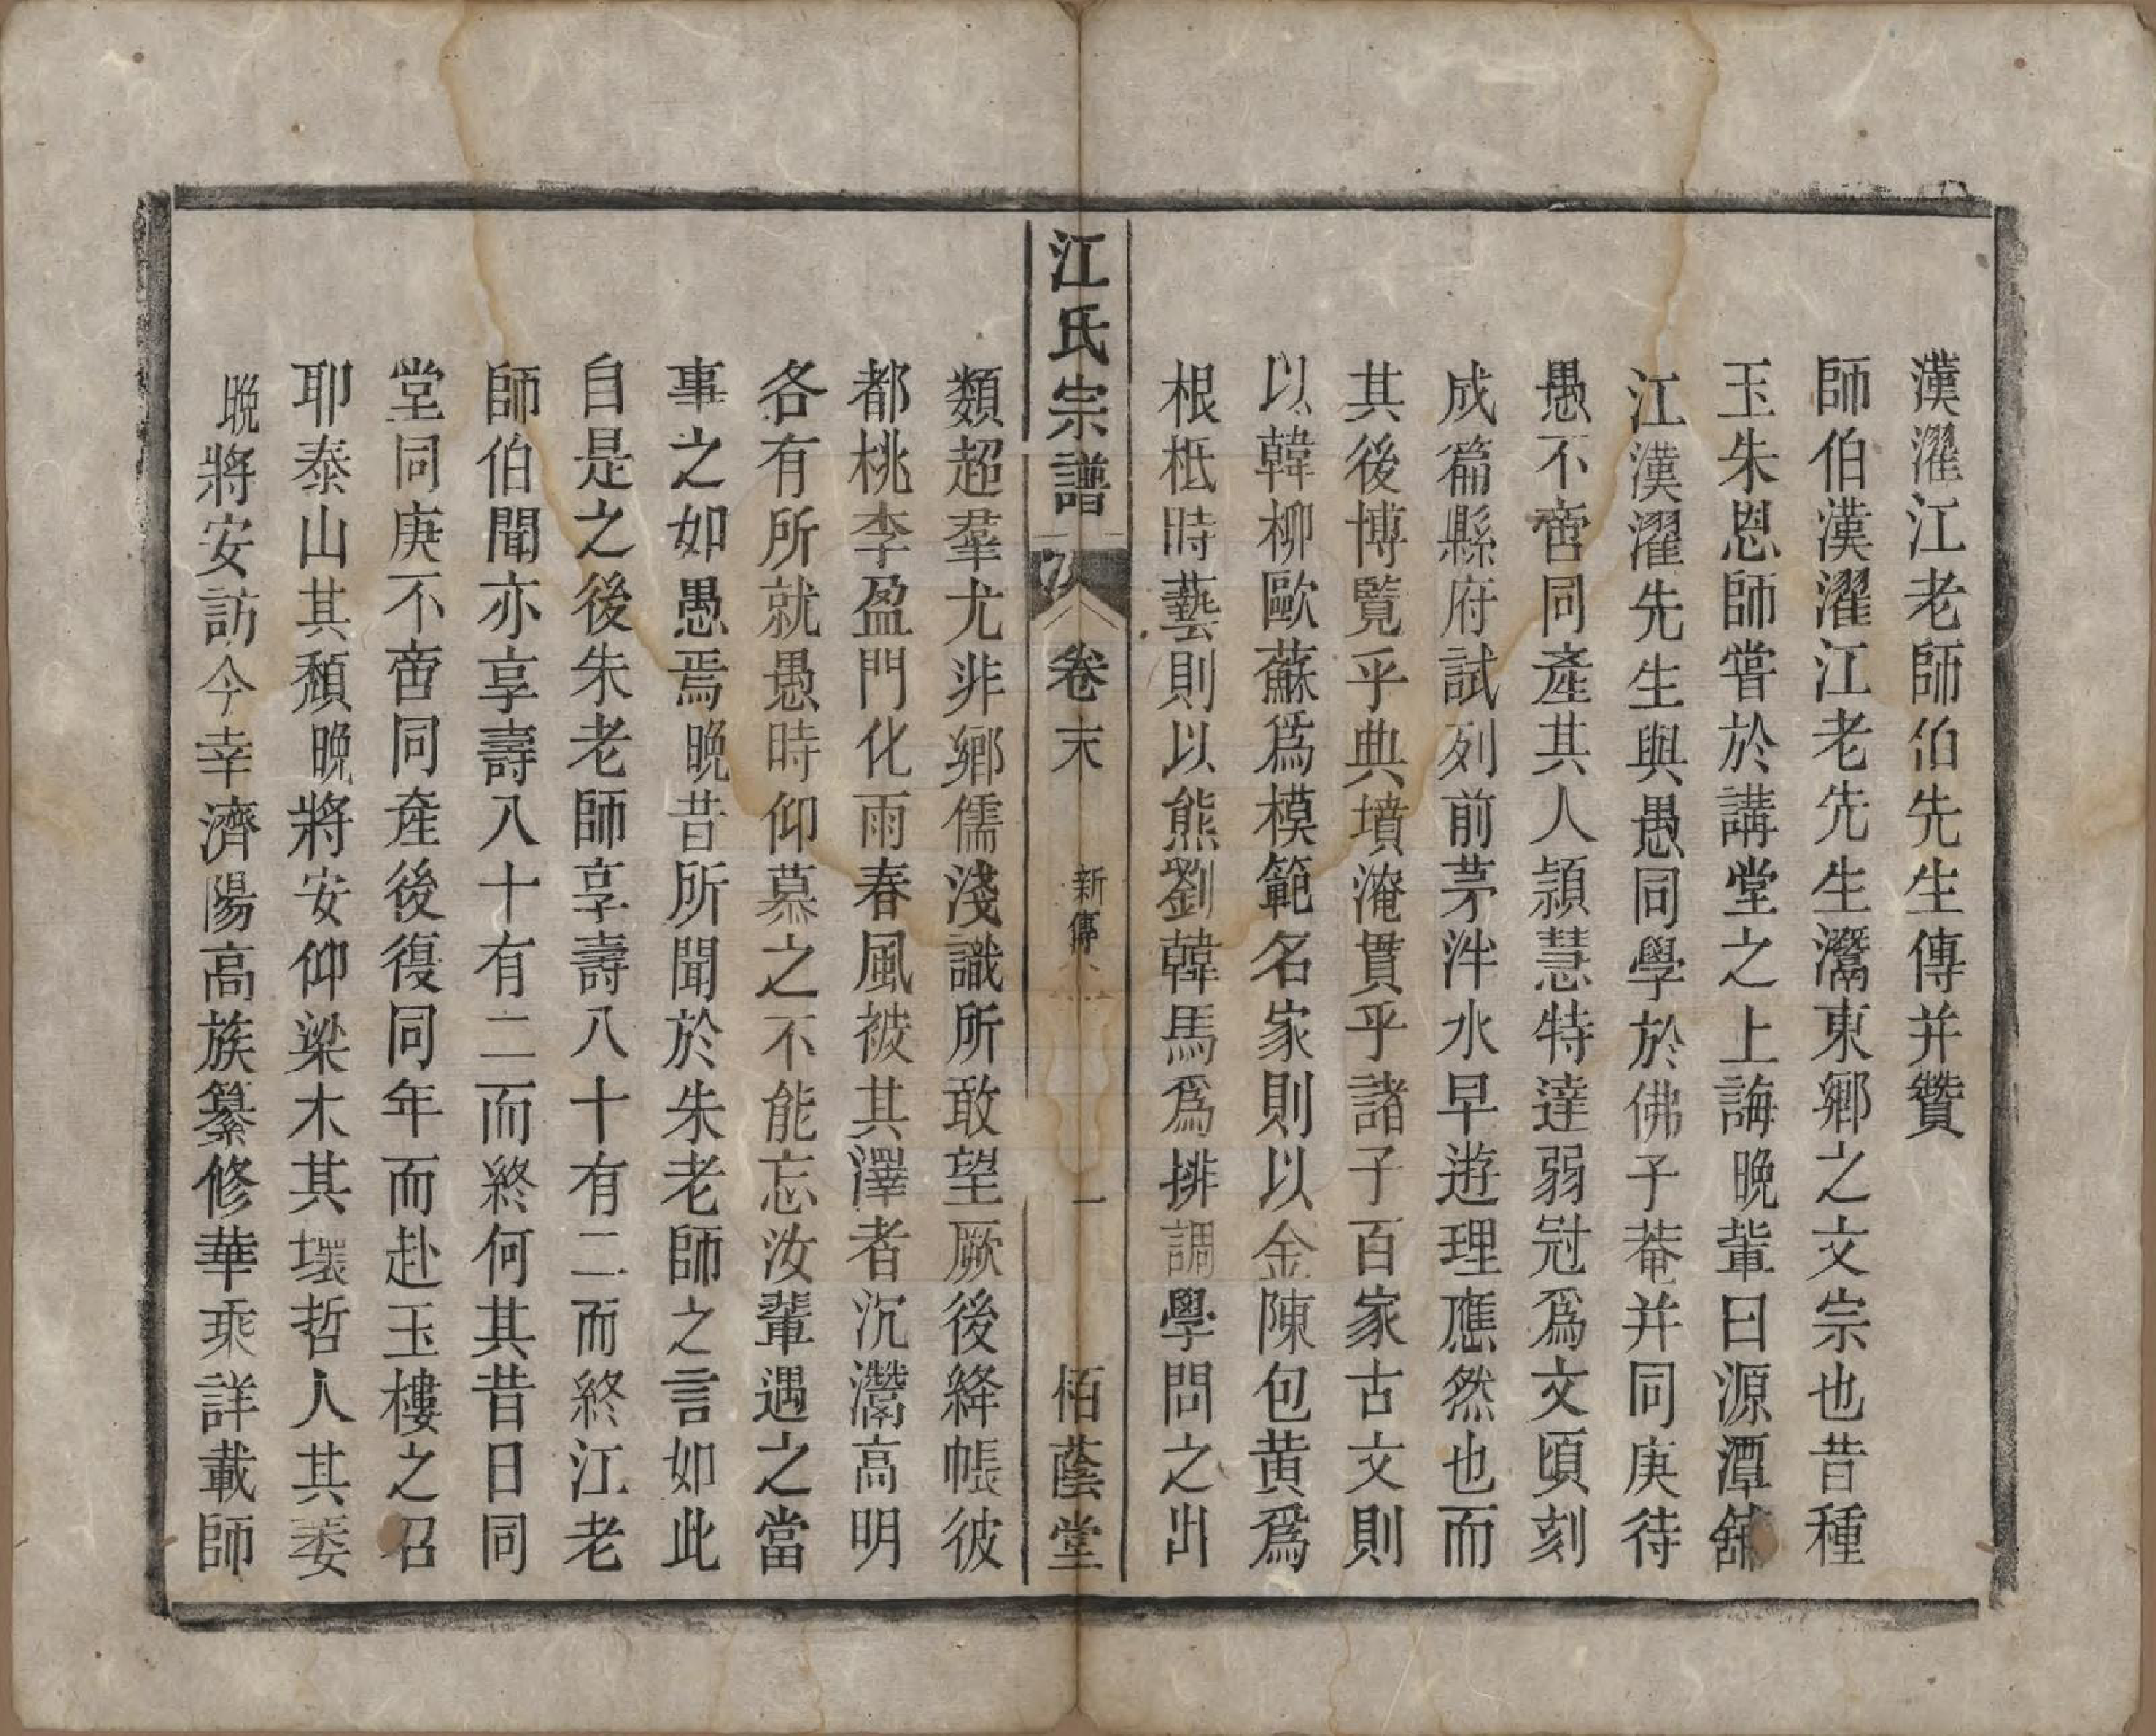 漢濯江老師伯先生傳并贊
師伯漢濯江老先生灊東鄉之文宗也昔種
玉朱恩師嘗於講堂之上誨晚輩曰源潭舖
江漢濯先生與愚同學於佛子菴并同庚待
愚不啻同產其人頴慧特達弱冠爲文頃刻
成篇縣府試列前茅泮水早遊理應然也而
其後博覧乎典墳淹貫乎諸子百家古文則
以韓柳歐蘇爲模範名家則以金陳包黄爲
根柢時藝則以熊劉韓馬爲排調學問之出
江氏宗譜
卷末
新傳
一
栢蔭堂
類超羣尤非鄉儒淺識所敢望厥後絳帳彼
都桃李盈門化雨春風被其澤者沉灊高明
各有所就愚時仰慕之不能忘汝輩遇之當
事之如愚焉晚昔所聞於朱老師之言如此
自是之後朱老師享壽八十有二而終江老
師伯聞亦享壽八十有二而終何其昔日同
堂同庚不啻同產後復同年而赴玉樓之召
耶泰山其頹晚將安仰梁木其壞哲人其萎
晚將安訪今幸濟陽高族纂修華乘詳載師